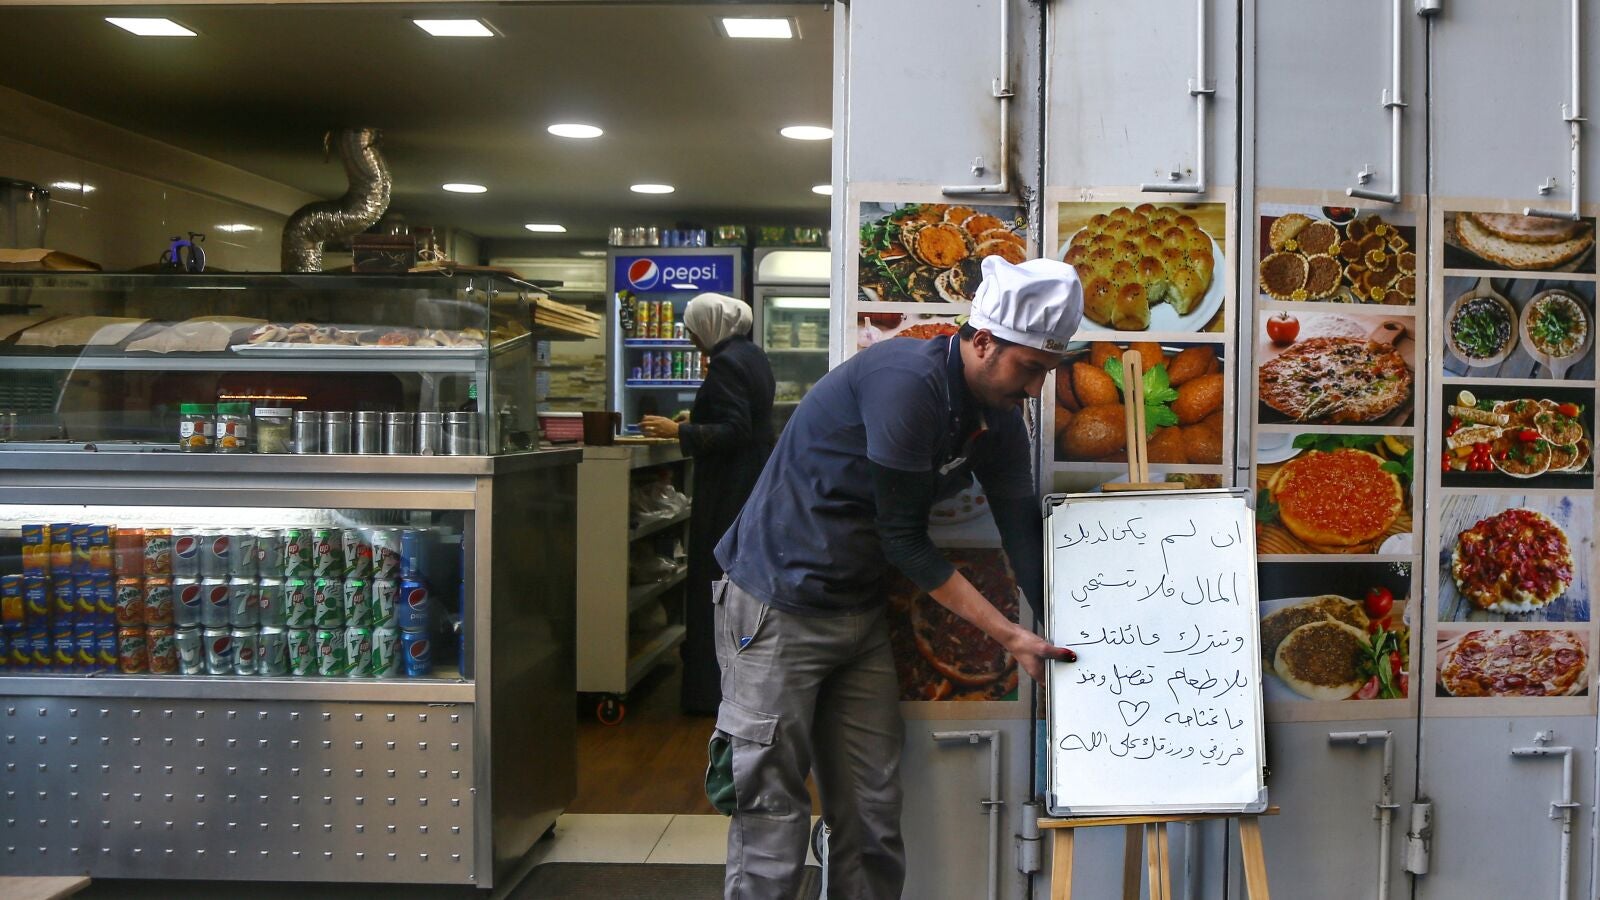 pepsi
ان لم يكن لديك
المال فلا تستحي
وتترك عائلتك
بلا طعام تفضل وخذ
ما تحتاجه ♡
فرزقي ورزقك على الله
7up
pepsi